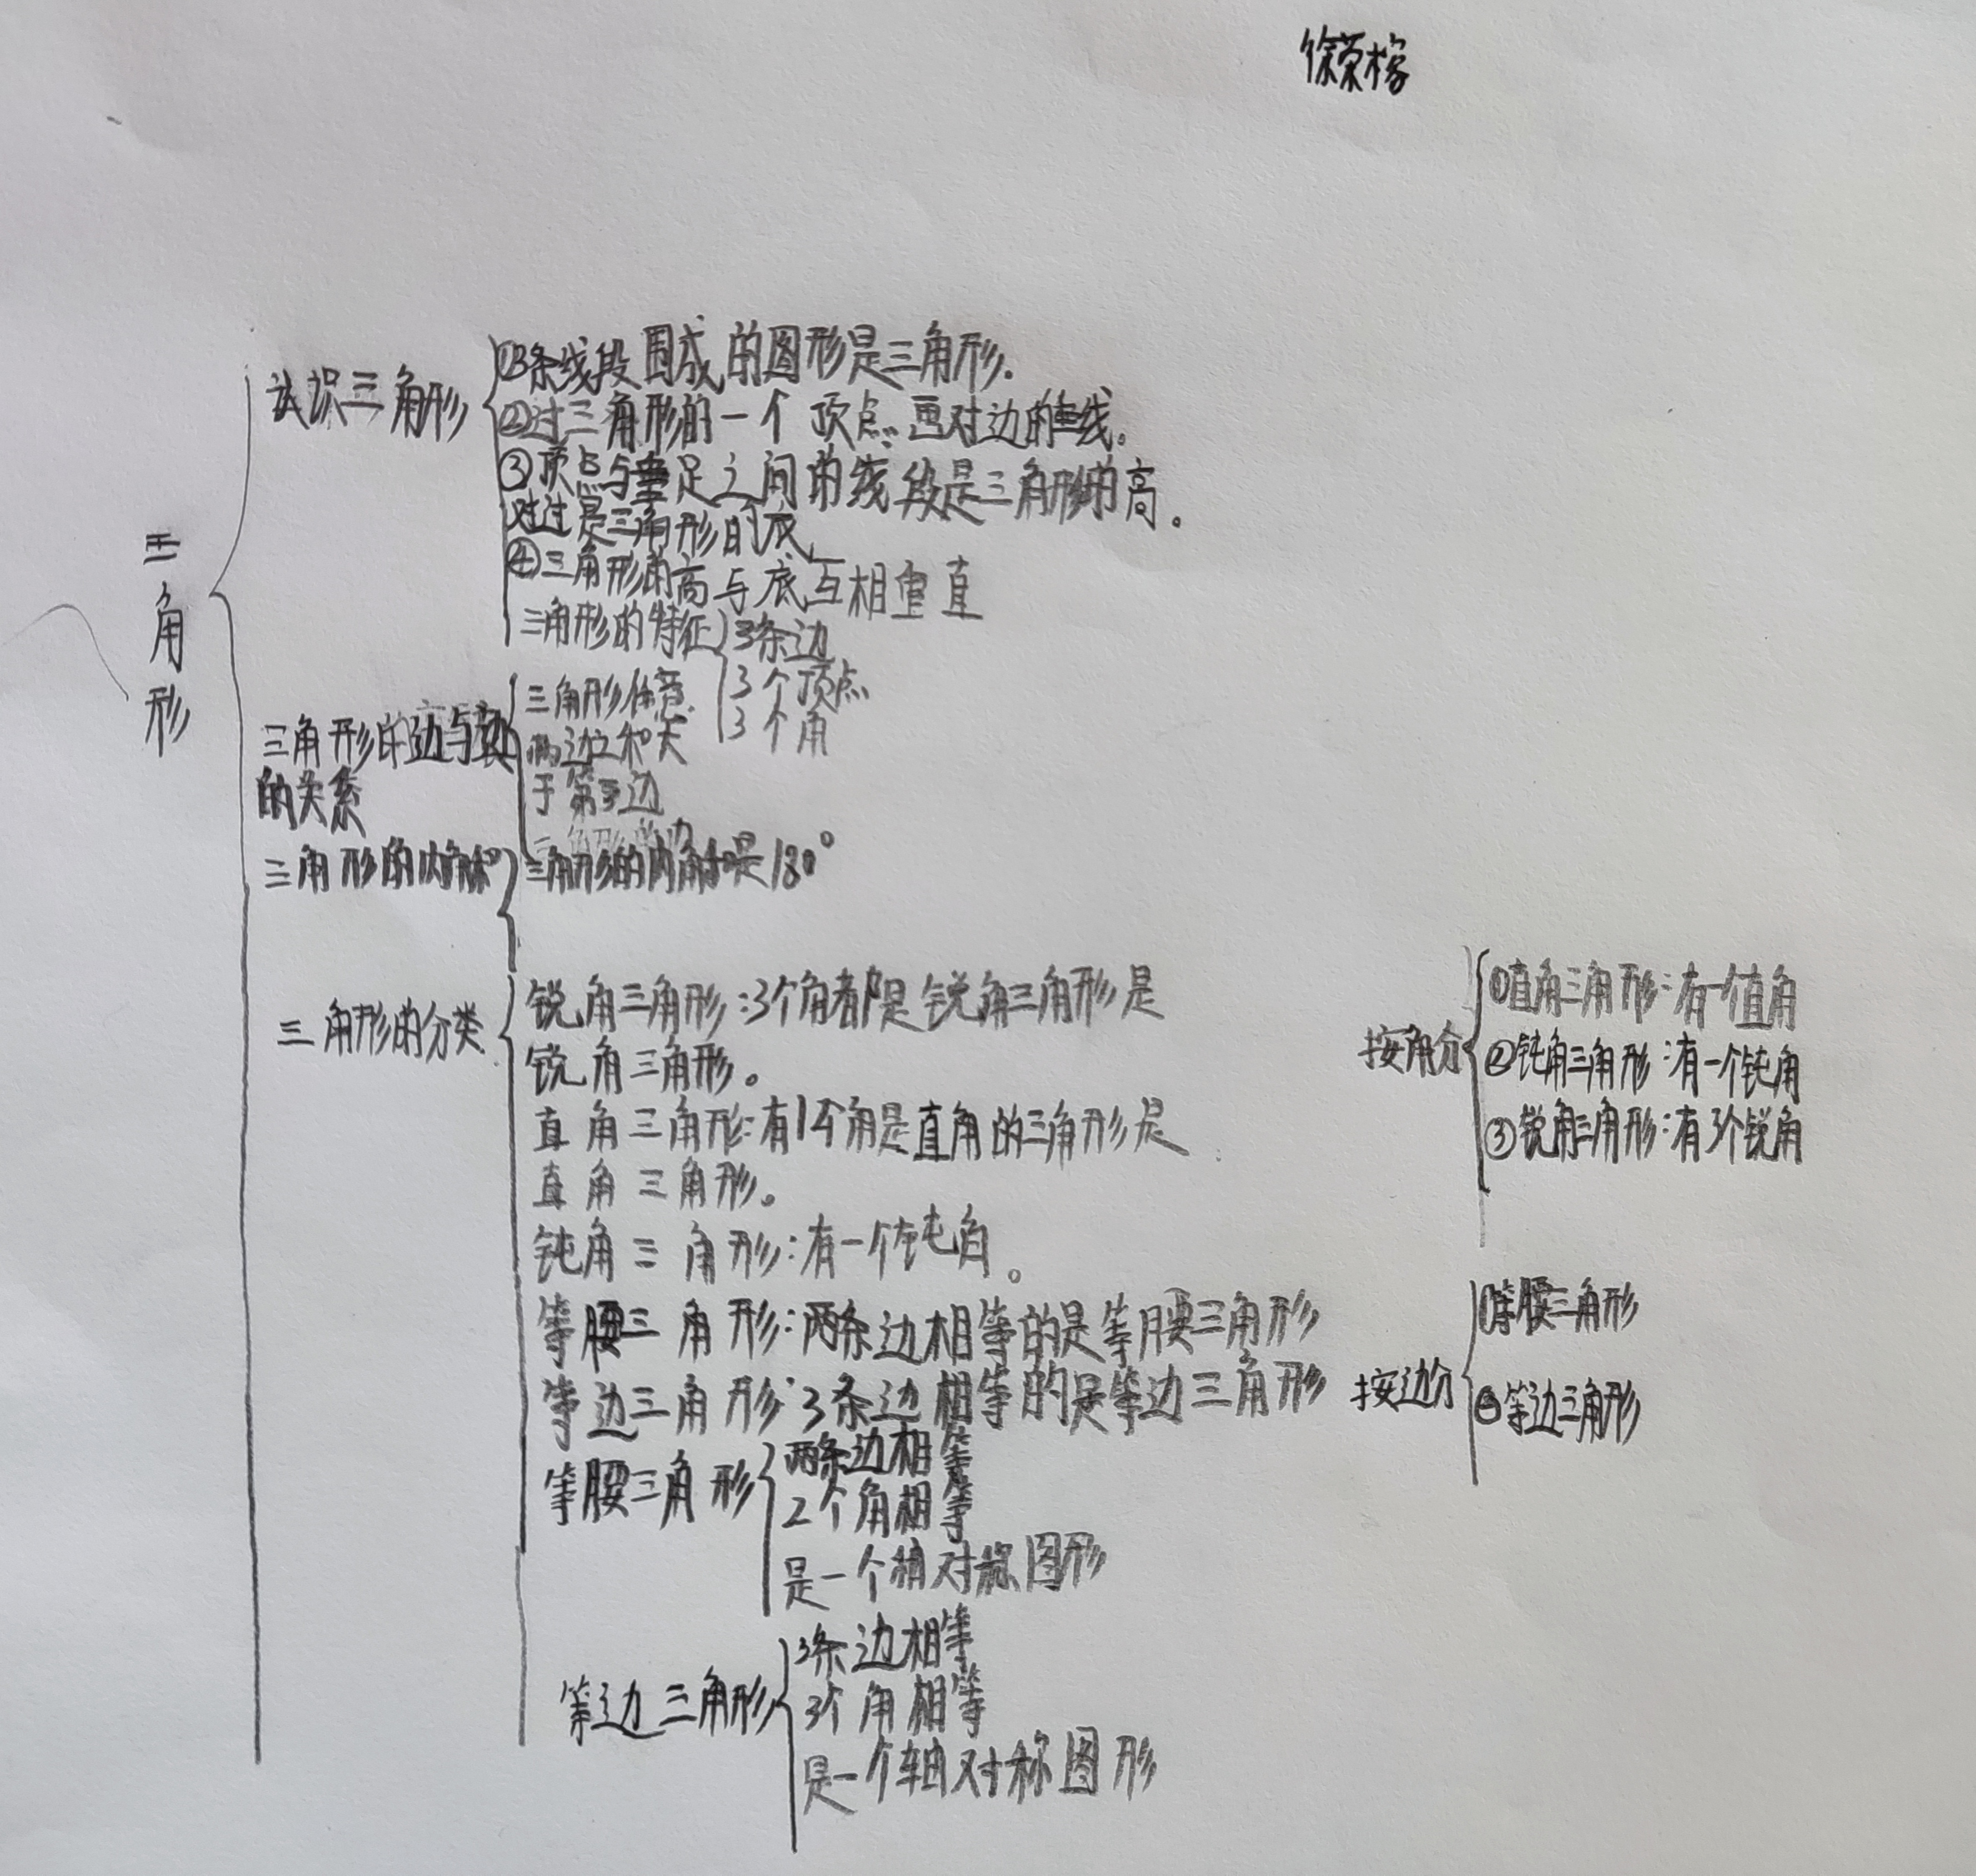 徐荣榕
三角形
认识三角形
①3条线段围成的图形是三角形.
②过三角形的一个顶点画对边的垂线。
③顶点与垂足之间的线段是三角形的高。
对过是三角形的底
④三角形的高与底互相垂直
三角形的特征
3条边
3个顶点
3个角
三角形的边与
的关系
三角形任意
两边之和大
于第三边
三角形的内角和
三角形的内角和是180°
三角形的分类
锐角三角形:3个角都是锐角三角形是
锐角三角形。
直角三角形:有1个角是直角的三角形是
直角三角形。
钝角三角形:有一个钝角。
等腰三角形:两条边相等的是等腰三角形
等边三角形:3条边相等的是等边三角形
等腰三角形
两条边相等
2个角相等
是一个轴对称图形
等边三角形
3条边相等
3个角相等
是一个轴对称图形
按角分
①直角三角形:有一个直角
②钝角三角形:有一个钝角
③锐角三角形:有3个锐角
按边分
①等腰三角形
②等边三角形